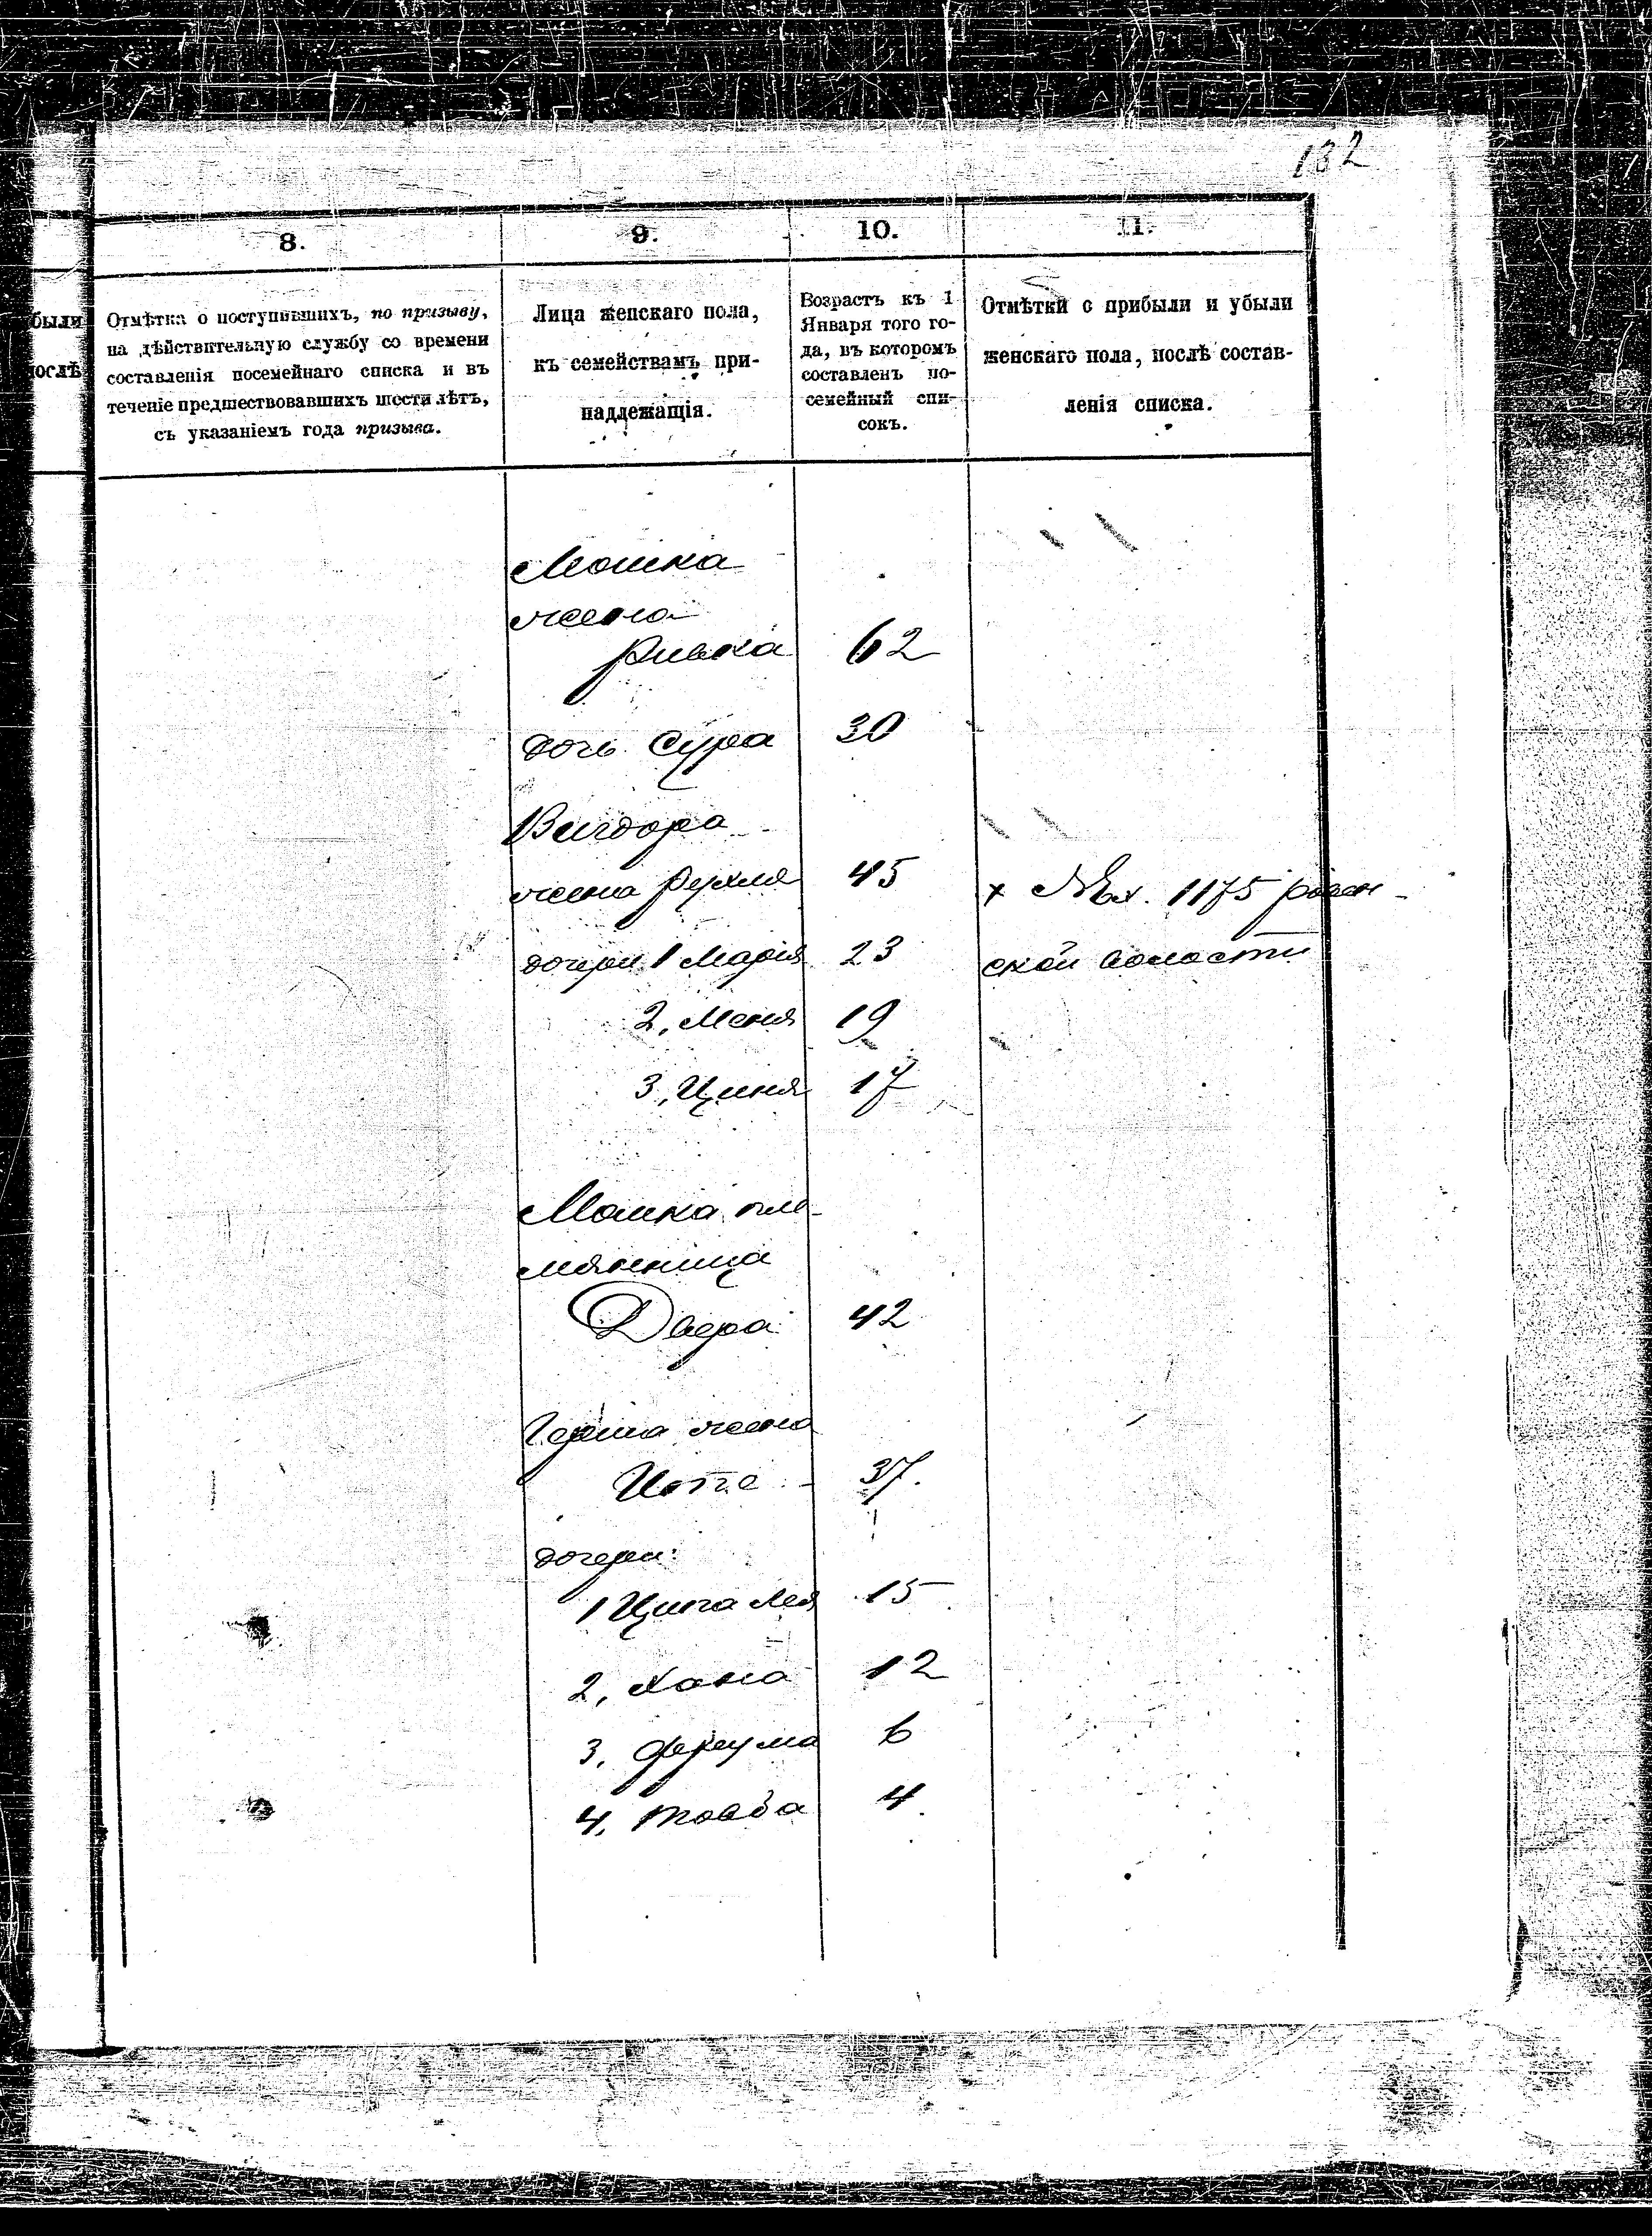 132
8. 9. 10. 11.
были
послѣ
Отмѣтка о поступившихъ, по призыву,
на дѣйствительную службу со времени
составленія посемейнаго списка и въ
теченіе предшествовавшихъ шести лѣтъ,
съ указаніемъ года призыва.
Лица женскаго пола,
къ семействамъ при-
надлежащія.
Возрастъ къ 1
Января того го-
да, въ которомъ
составленъ по-
семейный спи-
сокъ.
Отмѣтки о прибыли и убыли
женскаго пола, послѣ состав-
ленія списка.
Мошка
жена
Ривка 62
дочь Сура 30
Вигдора
жена Рухля 45 х 1175
дочери 1 Марія 23 ской волости
2, Меня 19
3, Циня 17
Мошка пле-
мянница
Двера 42
Герша жена
37.
дочери:
1 Ципа Лея 15
2, Хана 12
3, Фрейма 6
4, Товба 4